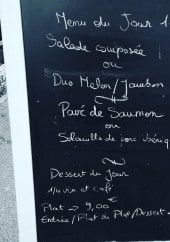 Menu du Jour 1
Salade composée
ou
Duo Melon/Jambon
Pavé de Saumon
ou
de porc ibériq
Dessert du Jour
1/4 vin et café
Plat → 9,00
Entrée / Plat ou Plat/Dessert